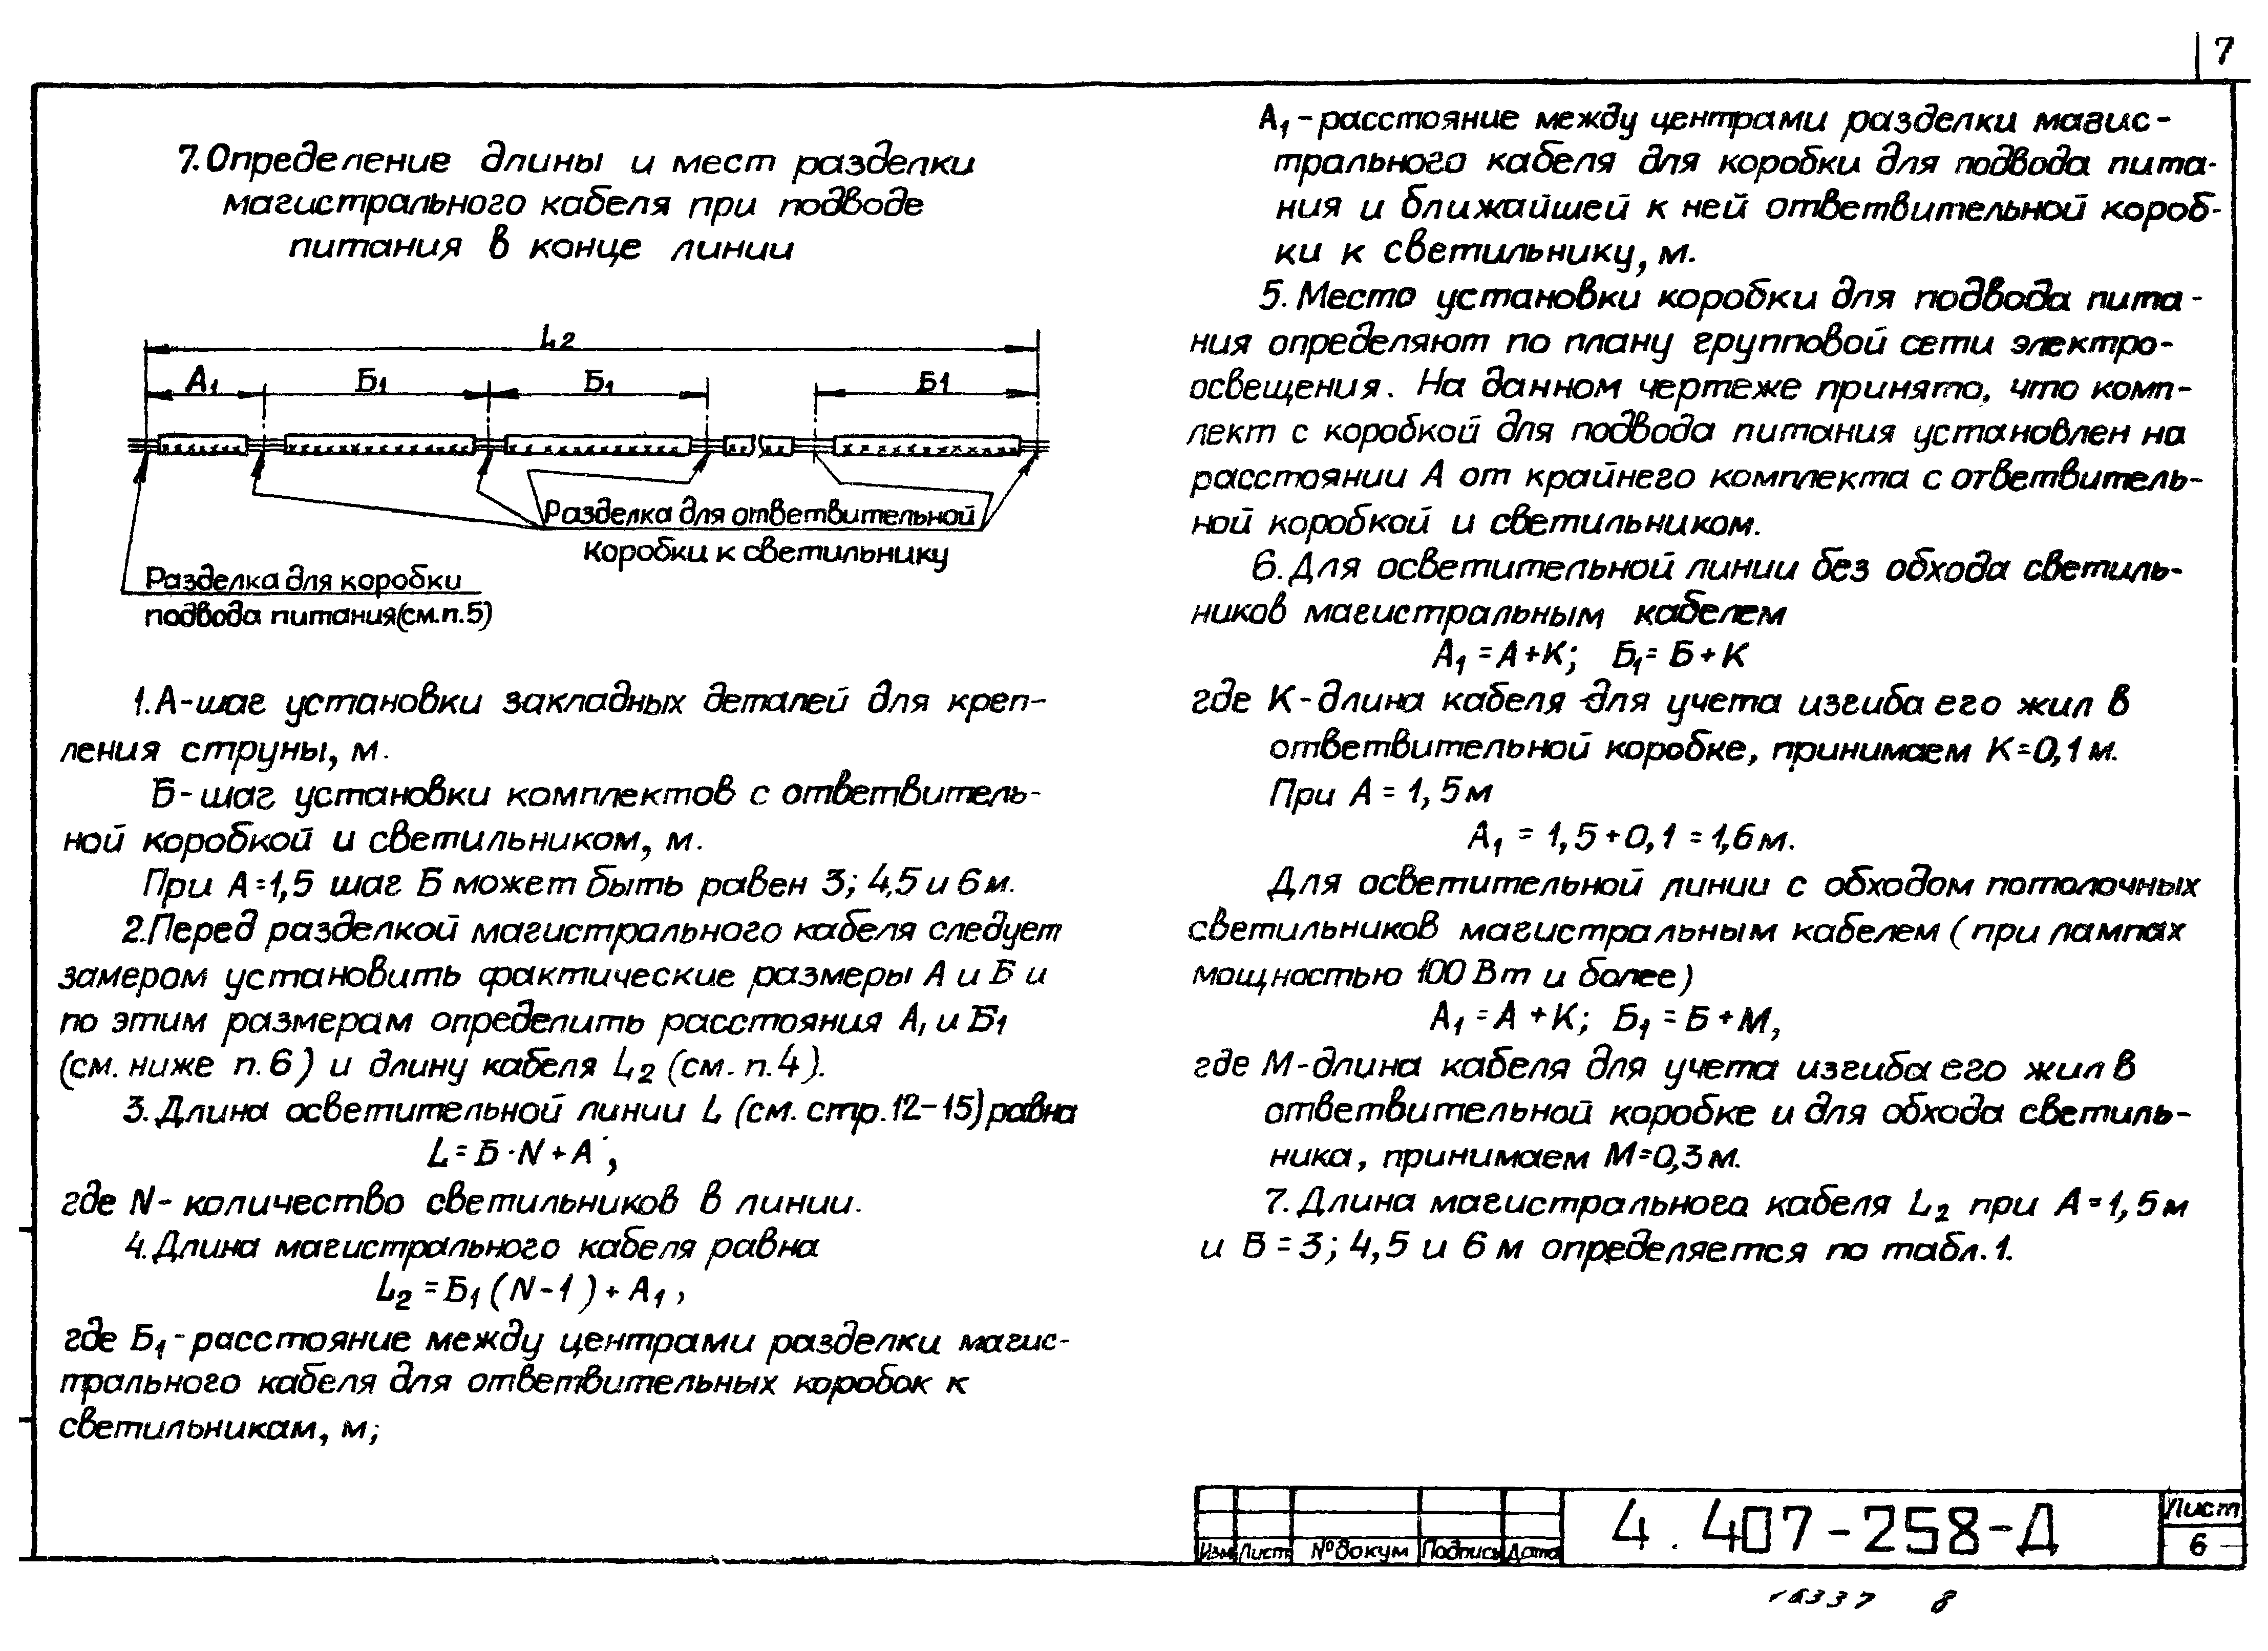 7
7. Определение длины и мест разделки
магистрального кабеля при подводе
питания в конце линии
L2
А1 Б1 Б1 Б1
Разделка для ответвительной
коробки к светильнику
Разделка для коробки
подвода питания(см.п.5)
1. А-шаг установки закладных деталей для креп-
ления струны, м.
Б-шаг установки комплектов с ответвитель-
ной коробкой и светильником, м.
При А=1,5 шаг Б может быть равен 3; 4,5 и 6 м.
2. Перед разделкой магистрального кабеля следует
замером установить фактические размеры А и Б и
по этим размерам определить расстояния А1 и Б1
(см. ниже п.6) и длину кабеля L2 (см. п.4).
3. Длина осветительной линии L (см. стр.12-15) равна
L=Б·N+А,
где N- количество светильников в линии.
4. Длина магистрального кабеля равна
L2=Б1(N-1)+А1,
где Б1-расстояние между центрами разделки магис-
трального кабеля для ответвительных коробок к
светильникам, м;
А1-расстояние между центрами разделки магис-
трального кабеля для коробки для подвода пита-
ния и ближайшей к ней ответвительной короб-
ки к светильнику, м.
5. Место установки коробки для подвода пита-
ния определяют по плану групповой сети электро-
освещения. На данном чертеже принято, что комп-
лект с коробкой для подвода питания установлен на
расстоянии А от крайнего комплекта с ответвитель-
ной коробкой и светильником.
6. Для осветительной линии без обхода светиль-
ников магистральным кабелем
А1=А+К; Б1=Б+К
где К-длина кабеля для учета изгиба его жил в
ответвительной коробке, принимаем К=0,1м.
При А=1,5м
А1=1,5+0,1=1,6м.
Для осветительной линии с обходом потолочных
светильников магистральным кабелем (при лампах
мощностью 100 Вт и более)
А1=А+К; Б1=Б+М,
где М-длина кабеля для учета изгиба его жил в
ответвительной коробке и для обхода светиль-
ника, принимаем М=0,3м.
7. Длина магистрального кабеля L2 при А=1,5м
и Б=3; 4,5 и 6 м определяется по табл.1.
Изм Лист № докум Подпись Дата
4.407-258-Д
Лист
6
16337 8